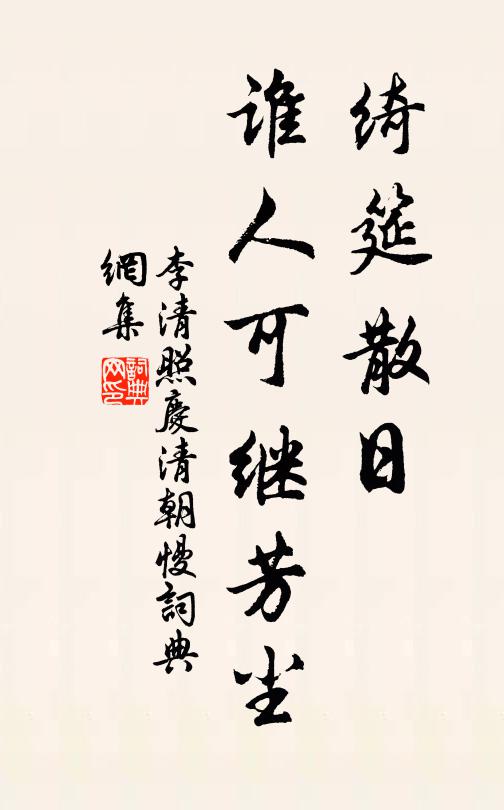 绮筵散日
谁人可继芳尘
李清照慶清朝慢詞典
網集
詞典
网印